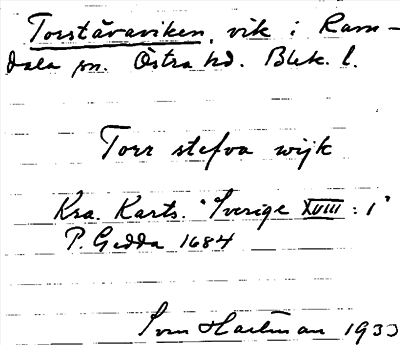 Torstävaviken, vik i Ram-
dala sn. Östra hd. Blek. l.
Torr stefva wijk
Kra. Karts. "Sverige XVIII : 1"
P. Gedda 1684
Sven Hallman 1933